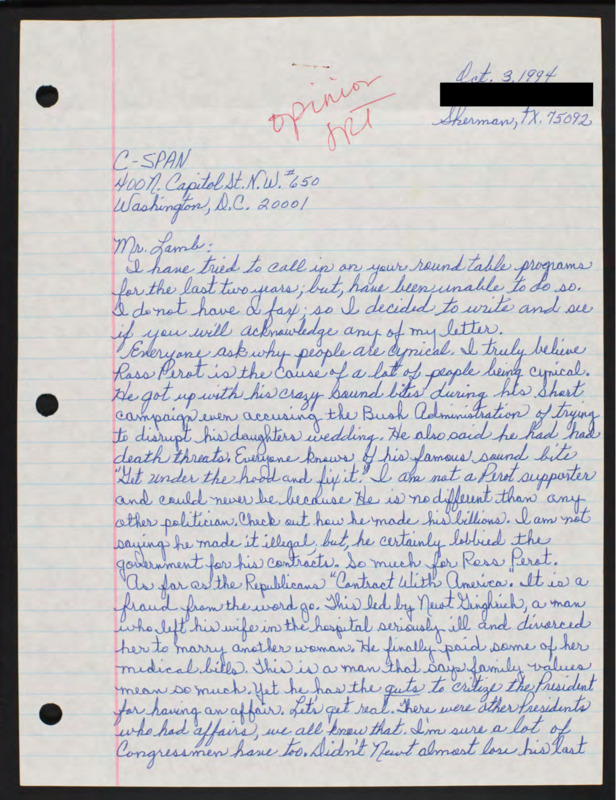 Oct. 3, 1994
Sherman, TX. 75092
opinion
ART
C-SPAN
400 N. Capitol St. N.W. #650
Washington, D.C. 20001
Mr. Lamb:
I have tried to call in on your round table programs
for the last two years; but, have been unable to do so.
I do not have a fax; so I decided to write and see
if you will acknowledge any of my letter.
Everyone ask why people are cynical. I truly believe
Ross Perot is the cause of a lot of people being cynical.
He got up with his crazy sound bites during his short
campaign even accusing the Bush Administration of trying
to disrupt his daughters wedding. He also said he had had
death threats. Everyone knows of his famous sound bite
"Get under the hood and fix it." I am not a Perot supporter
and could never be because He is no different than any
other politician. Check out how he made his billions. I am not
saying he made it illegal, but, he certainly lobbied the
government for his contracts. So much for Ross Perot.
As far as the Republicans "Contract With America". It is a
fraud from the word go. This led by Newt Ginghrich, a man
who left his wife in the hospital seriously ill and divorced
her to marry another woman. He finally paid some of her
medical bills. This is a man that says family values
mean so much. Yet he has the guts to critize the President
for having an affair. Let's get real. There were other Presidents
who had affairs, we all know that. I'm sure a lot of
Congressmen have too. Didn't Newt almost lose his last